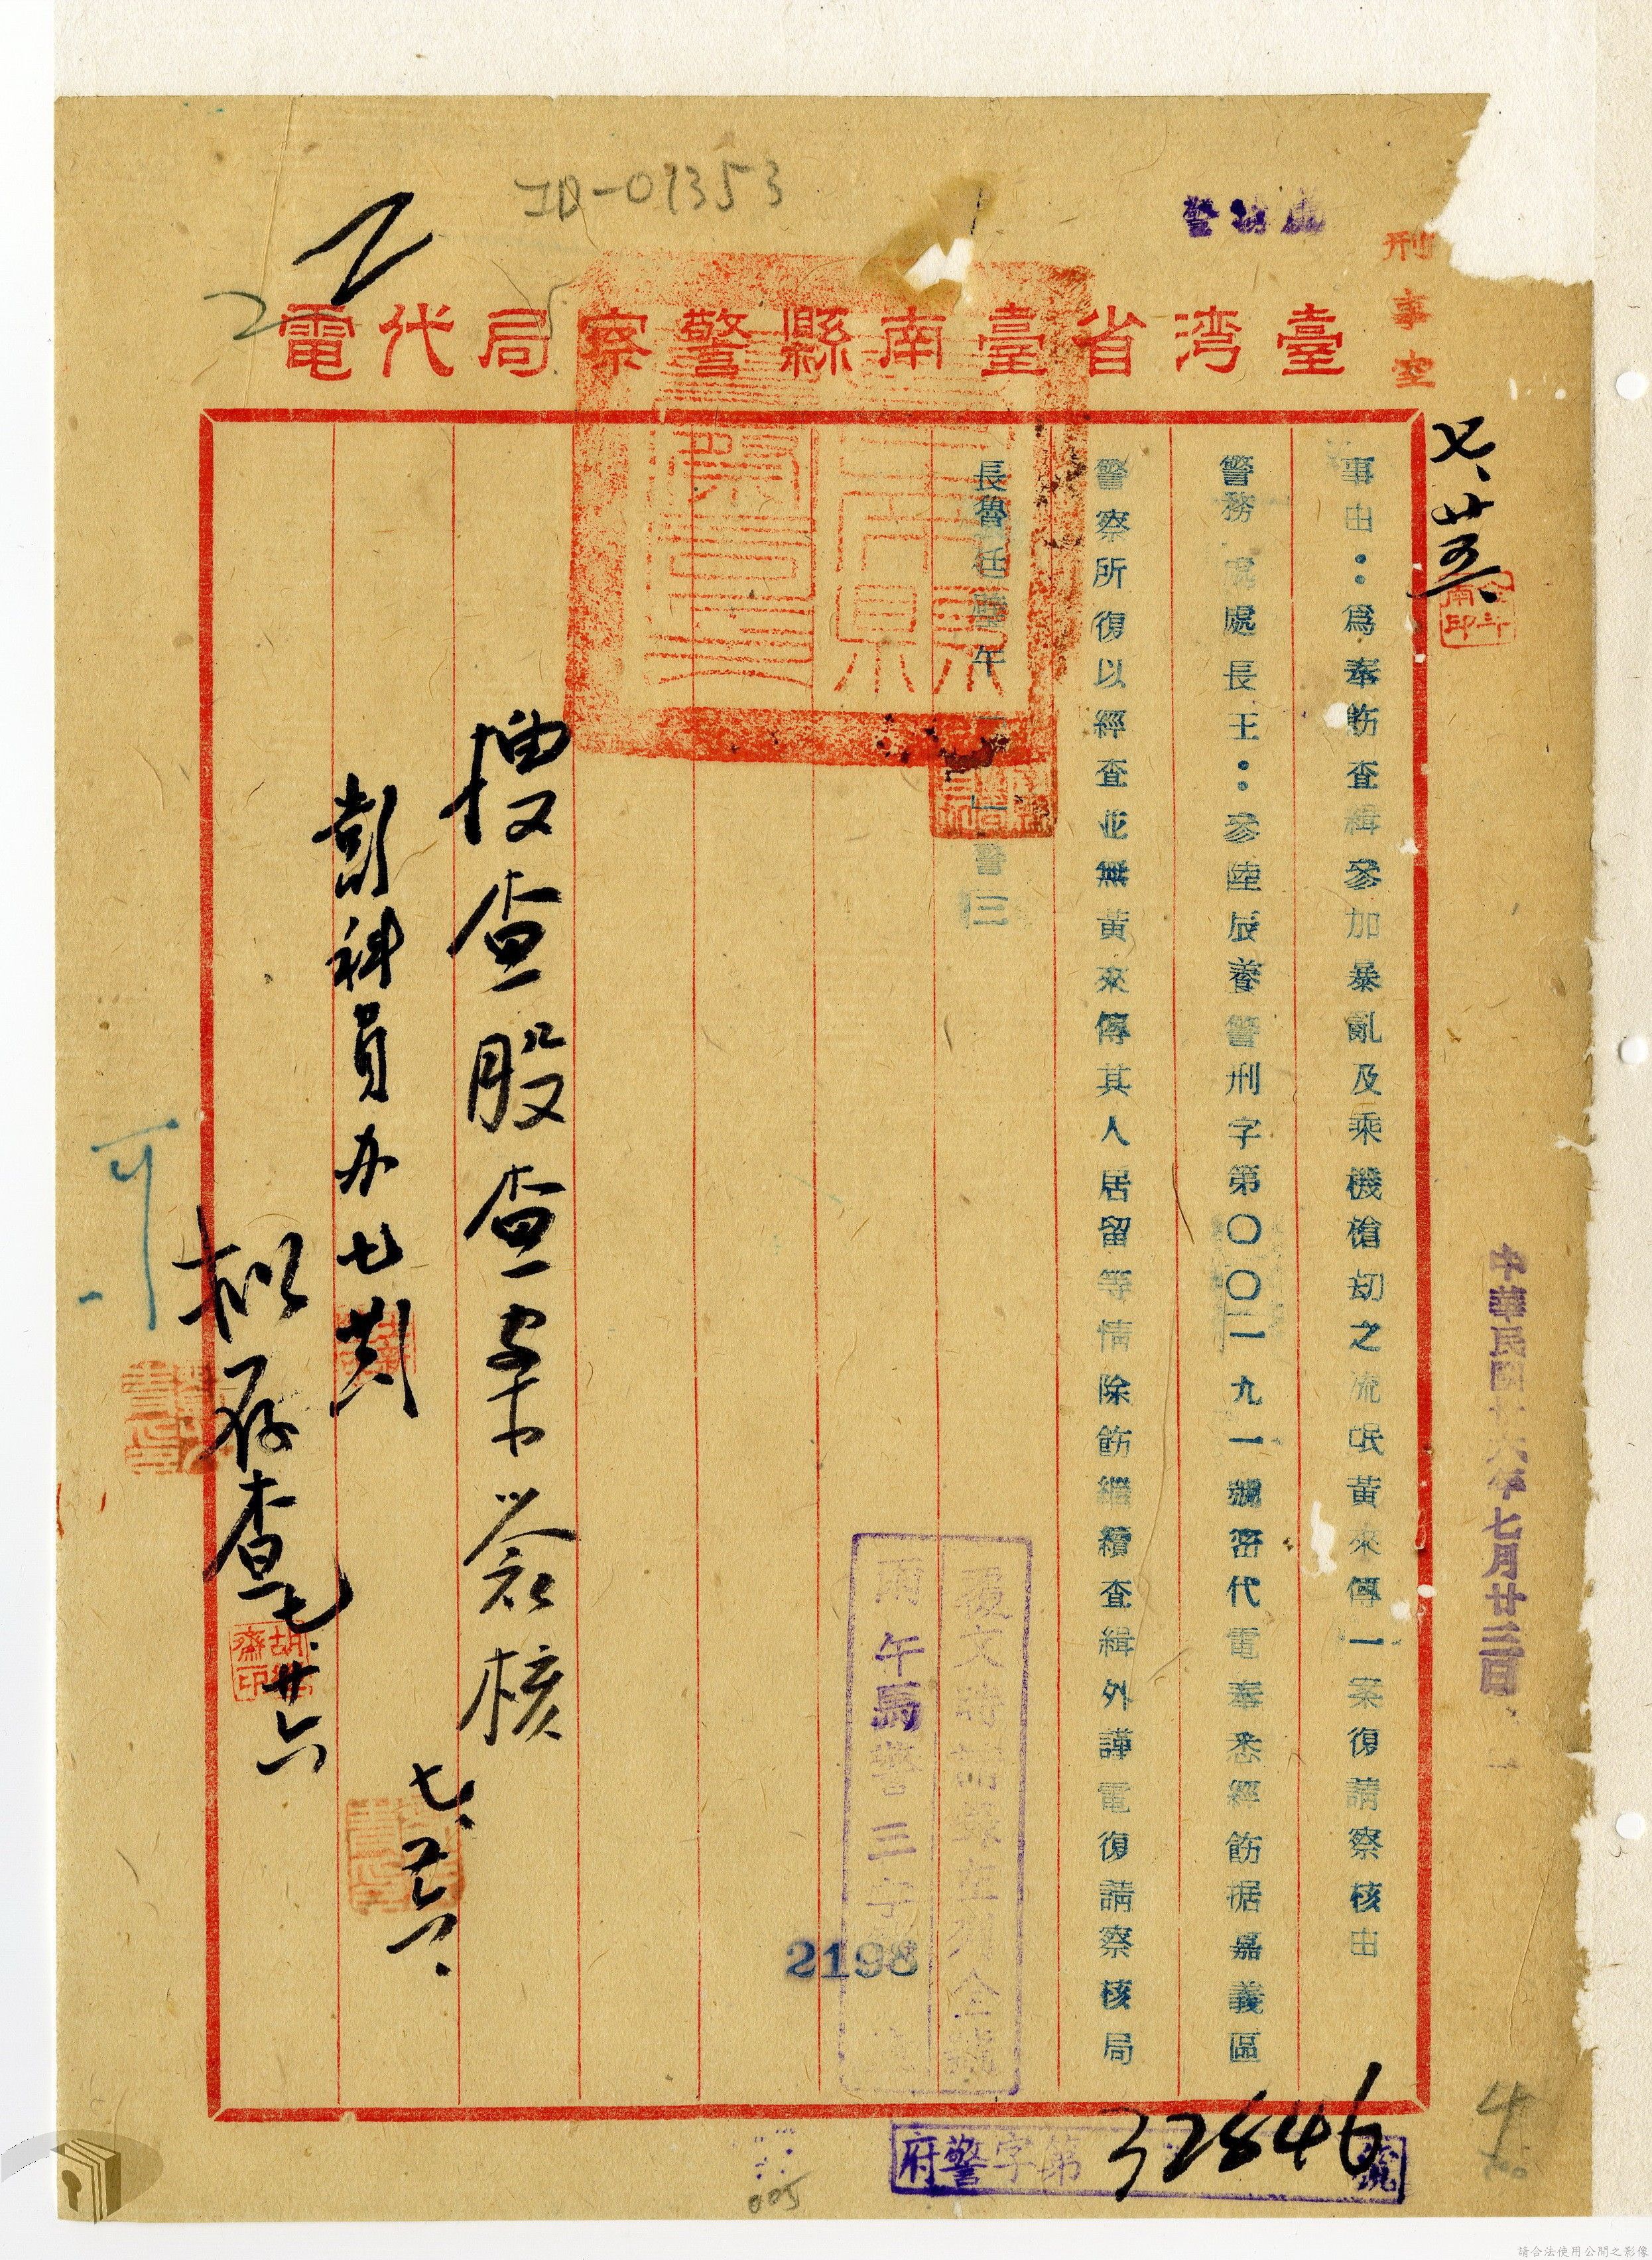 ID-01353
警務處
刑事室
臺灣省臺南縣警察局代電
七、廿五
事由：為奉飭查緝參加暴亂及乘機搶劫之流氓黃來傳一案復請察核由
警務處處長王：參陸辰養警刑字第〇〇一九一號密代電奉悉經飭据嘉義區
警察所復以經查並無黃來傳其人居留等情除飭繼續查緝外謹電復請察核局
長 午 警三
中華民國卅六年七月廿三日
復文時請錄全銜
午馬警三字
2198
搜查股查案簽核
彭科員办 七
擬存查 七.廿六
胡 齋印
可
府警字第32846號
005
請合法使用公開之影像